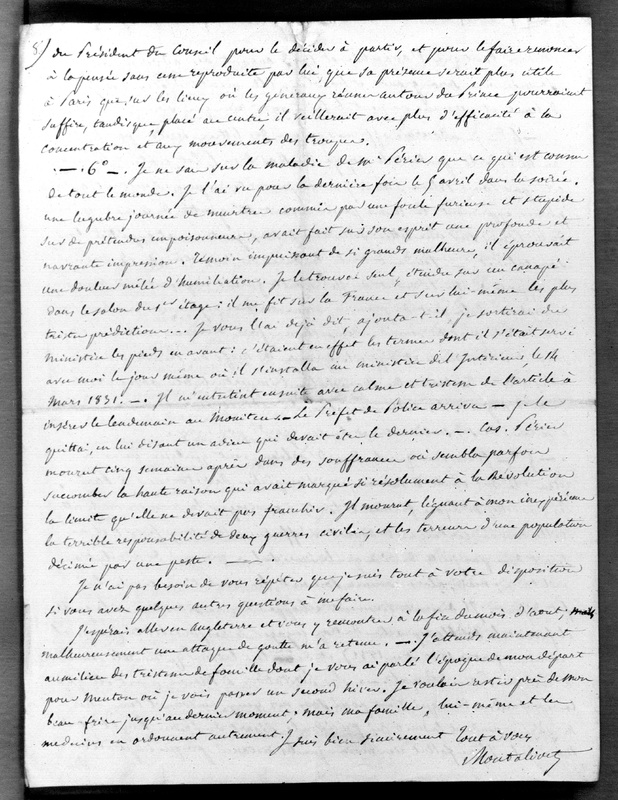 5) du Président du Conseil pour le décider à partir, et pour le faire renoncer
à la pensée sans cesse reproduite par lui, que sa présence serait plus utile
à Paris que sur les lieux où les généraux réunis autour du Prince pourraient
suffire, tandis que, placé au centre, il veillerait avec plus d'efficacité à la
concentration et aux mouvements des troupes.
— . 6° — . Je ne sais sur la maladie de Mr Périer que ce qui est connu
de tout le monde. Je l'ai vu pour la dernière fois le 5 avril dans la soirée.
une lugubre journée de meurtres commis par une foule furieuse et stupide
sur de prétendus empoisonneurs, avait fait sur son esprit une profonde et
navrante impression. Témoin impuissant de si grands malheurs, il éprouvait
une douleur mêlée d'humiliation. Je le trouvai seul, étendu sur un canapé
dans le salon du 1er étage : il me fit sur la France et sur lui-même les plus
tristes prédictions... Je vous l'ai déjà dit, ajouta-t-il, je sortirai du
ministère les pieds en avant : c'étaient en effet les termes dont il s'était servi
avec moi le jour même où il s'installa au ministère de l'Intérieur, le 14
Mars 1831. — . Il m'entretint ensuite avec calme et tristesse de l'article à
insérer le lendemain au Moniteur. — Le Préfet de Police arriva — Je le
quittai, en lui disant un adieu qui devait être le dernier. — . Cas. Périer
mourut cinq semaines après dans des souffrances où sembla parfois
succomber la haute raison qui avait marqué si résolument à la Révolution
la limite qu'elle ne devait pas franchir. Il mourut, léguant à mon inexpérience
la terrible responsabilité de deux guerres civiles, et les terreurs d'une population
décimée par une peste. — .
Je n'ai pas besoin de vous répéter que je suis tout à votre disposition
si vous avez quelques autres questions à me faire.
J'espérais aller en Angleterre et vous y rencontrer à la fin du mois d'août, mais
malheureusement une attaque de goutte m'a retenu. — . J'attends maintenant
au milieu des tristesses de famille dont je vous ai parlé l'époque de mon départ
pour Menton où je vais passer un second hiver. Je voulais rester près de mon
beau-frère jusqu'au dernier moment ; mais ma famille, lui-même et les
médecins en ordonnent autrement. Je suis bien sincèrement tout à vous
Montalivet